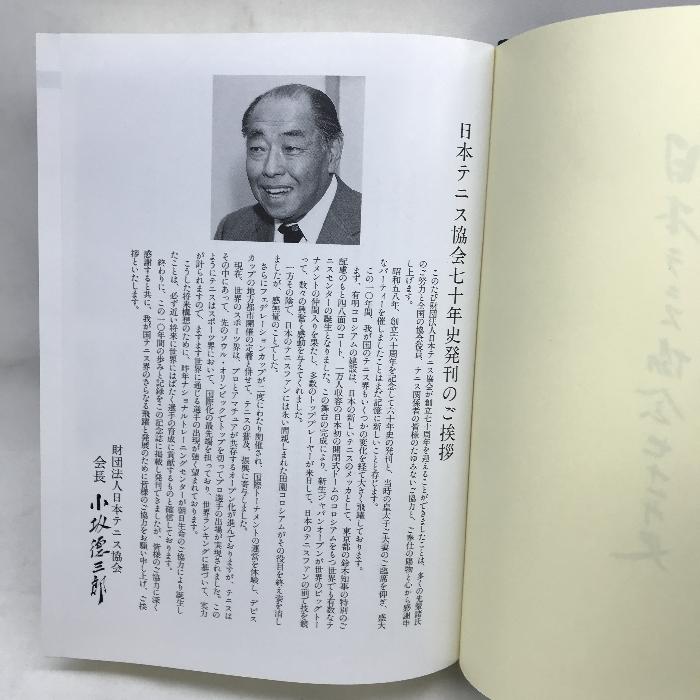 日本テニス協会七十年史発刊のご挨拶
このたび財団法人日本テニス協会が創立七十周年を迎えることができましたことは、多くの先輩諸氏
のご努力と全国の協会役員、テニス関係者の皆様のたゆみないご協力、ご奉仕の賜物と心から感謝申
し上げます。
昭和五八年、創立六十周年を記念して六十年史の発刊と、当時の皇太子ご夫妻のご臨席を仰ぎ、盛大
なパーティーを催しましたことはまだ記憶に新しいことと存じます。
この一〇年間、我が国のテニス界もいくつかの変化を経て大きく飛躍しております。
まず、有明コロシアムの建設は、日本の新しいテニスのメッカとして、東京都の鈴木知事の特別のご
配慮のもと四八面のコート、一万人収容の日本初の開閉式ドームのコロシアムをもつ世界でも有数なテ
ニスセンターの誕生となりました。この舞台の完成により、新生ジャパンオープンが世界のビッグトー
ナメントの仲間入りを果たし、多数のトッププレーヤーが来日して、日本のテニスファンの前で技を競
って、数々の興奮と感動を与えてくれました。
一方その陰で、日本のテニスファンには永い間親しまれた田園コロシアムがその役目を終え姿を消し
ましたが、感無量のことでした。
さらにフェデレーションカップが二度にわたり開催され、国際トーナメントの運営を体験し、デビス
カップの地方都市開催の定着と併せて、テニスの普及、振興に寄与しました。
現在、世界のスポーツ界は、プロとアマチュアが共存するオープン化が進んでおりますが、テニスは
その中にあって、先のソウル・オリンピックでトップを切ってプロ選手の出場が実現されました。この
ようにテニスはスポーツ界において、国際化の最先端を担っており、世界ランキングに基づいて、実力
が計られますので、ますます世界に通じる選手の出現が強く望まれております。
こうした将来構想のために、昨年ナショナルトレーニングセンターが朝日生命のご協力により誕生し
たことは、必ず近い将来に世界にはばたく選手の育成に貢献するものと確信しております。
終わりに、この一〇年間の歩みと記録をこの記念誌に掲載し発刊できましたが、皆様のご協力に深く
感謝すると共に、我が国テニス界のさらなる飛躍と発展のために皆様のご協力をお願い申し上げ、ご挨
拶といたします。
財団法人日本テニス協会
会長 小坂徳三郎